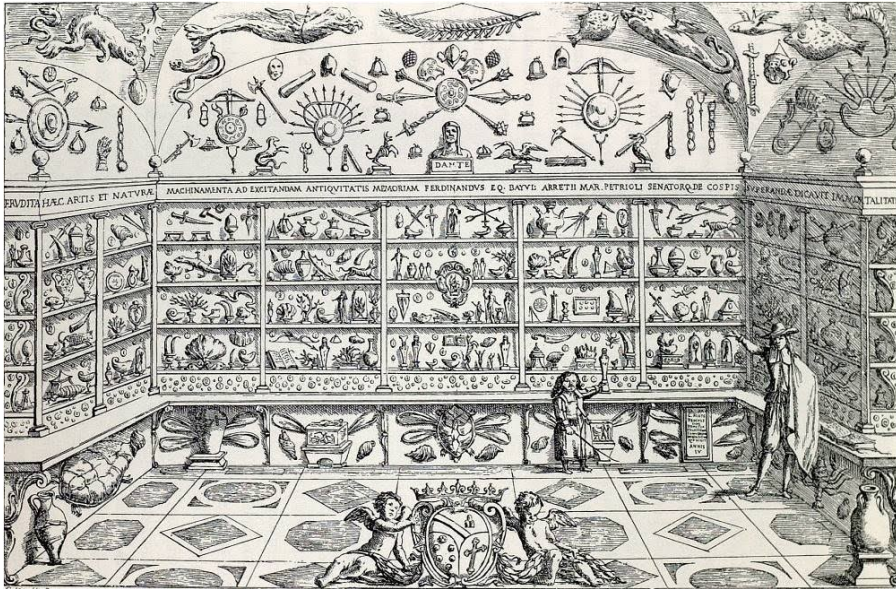 ERVDITA HÆC ARTIS ET NATURÆ MACHINAMENTA AD EXCITANDAM ANTIQVITATIS MEMORIAM FERDINANDVS EQ. BAYVL ARRETII MAR. PETRIOLI SENATORQ. DE COSPIS SVPERANDÆ DICAVIT IMMORTALITATI
DANTE